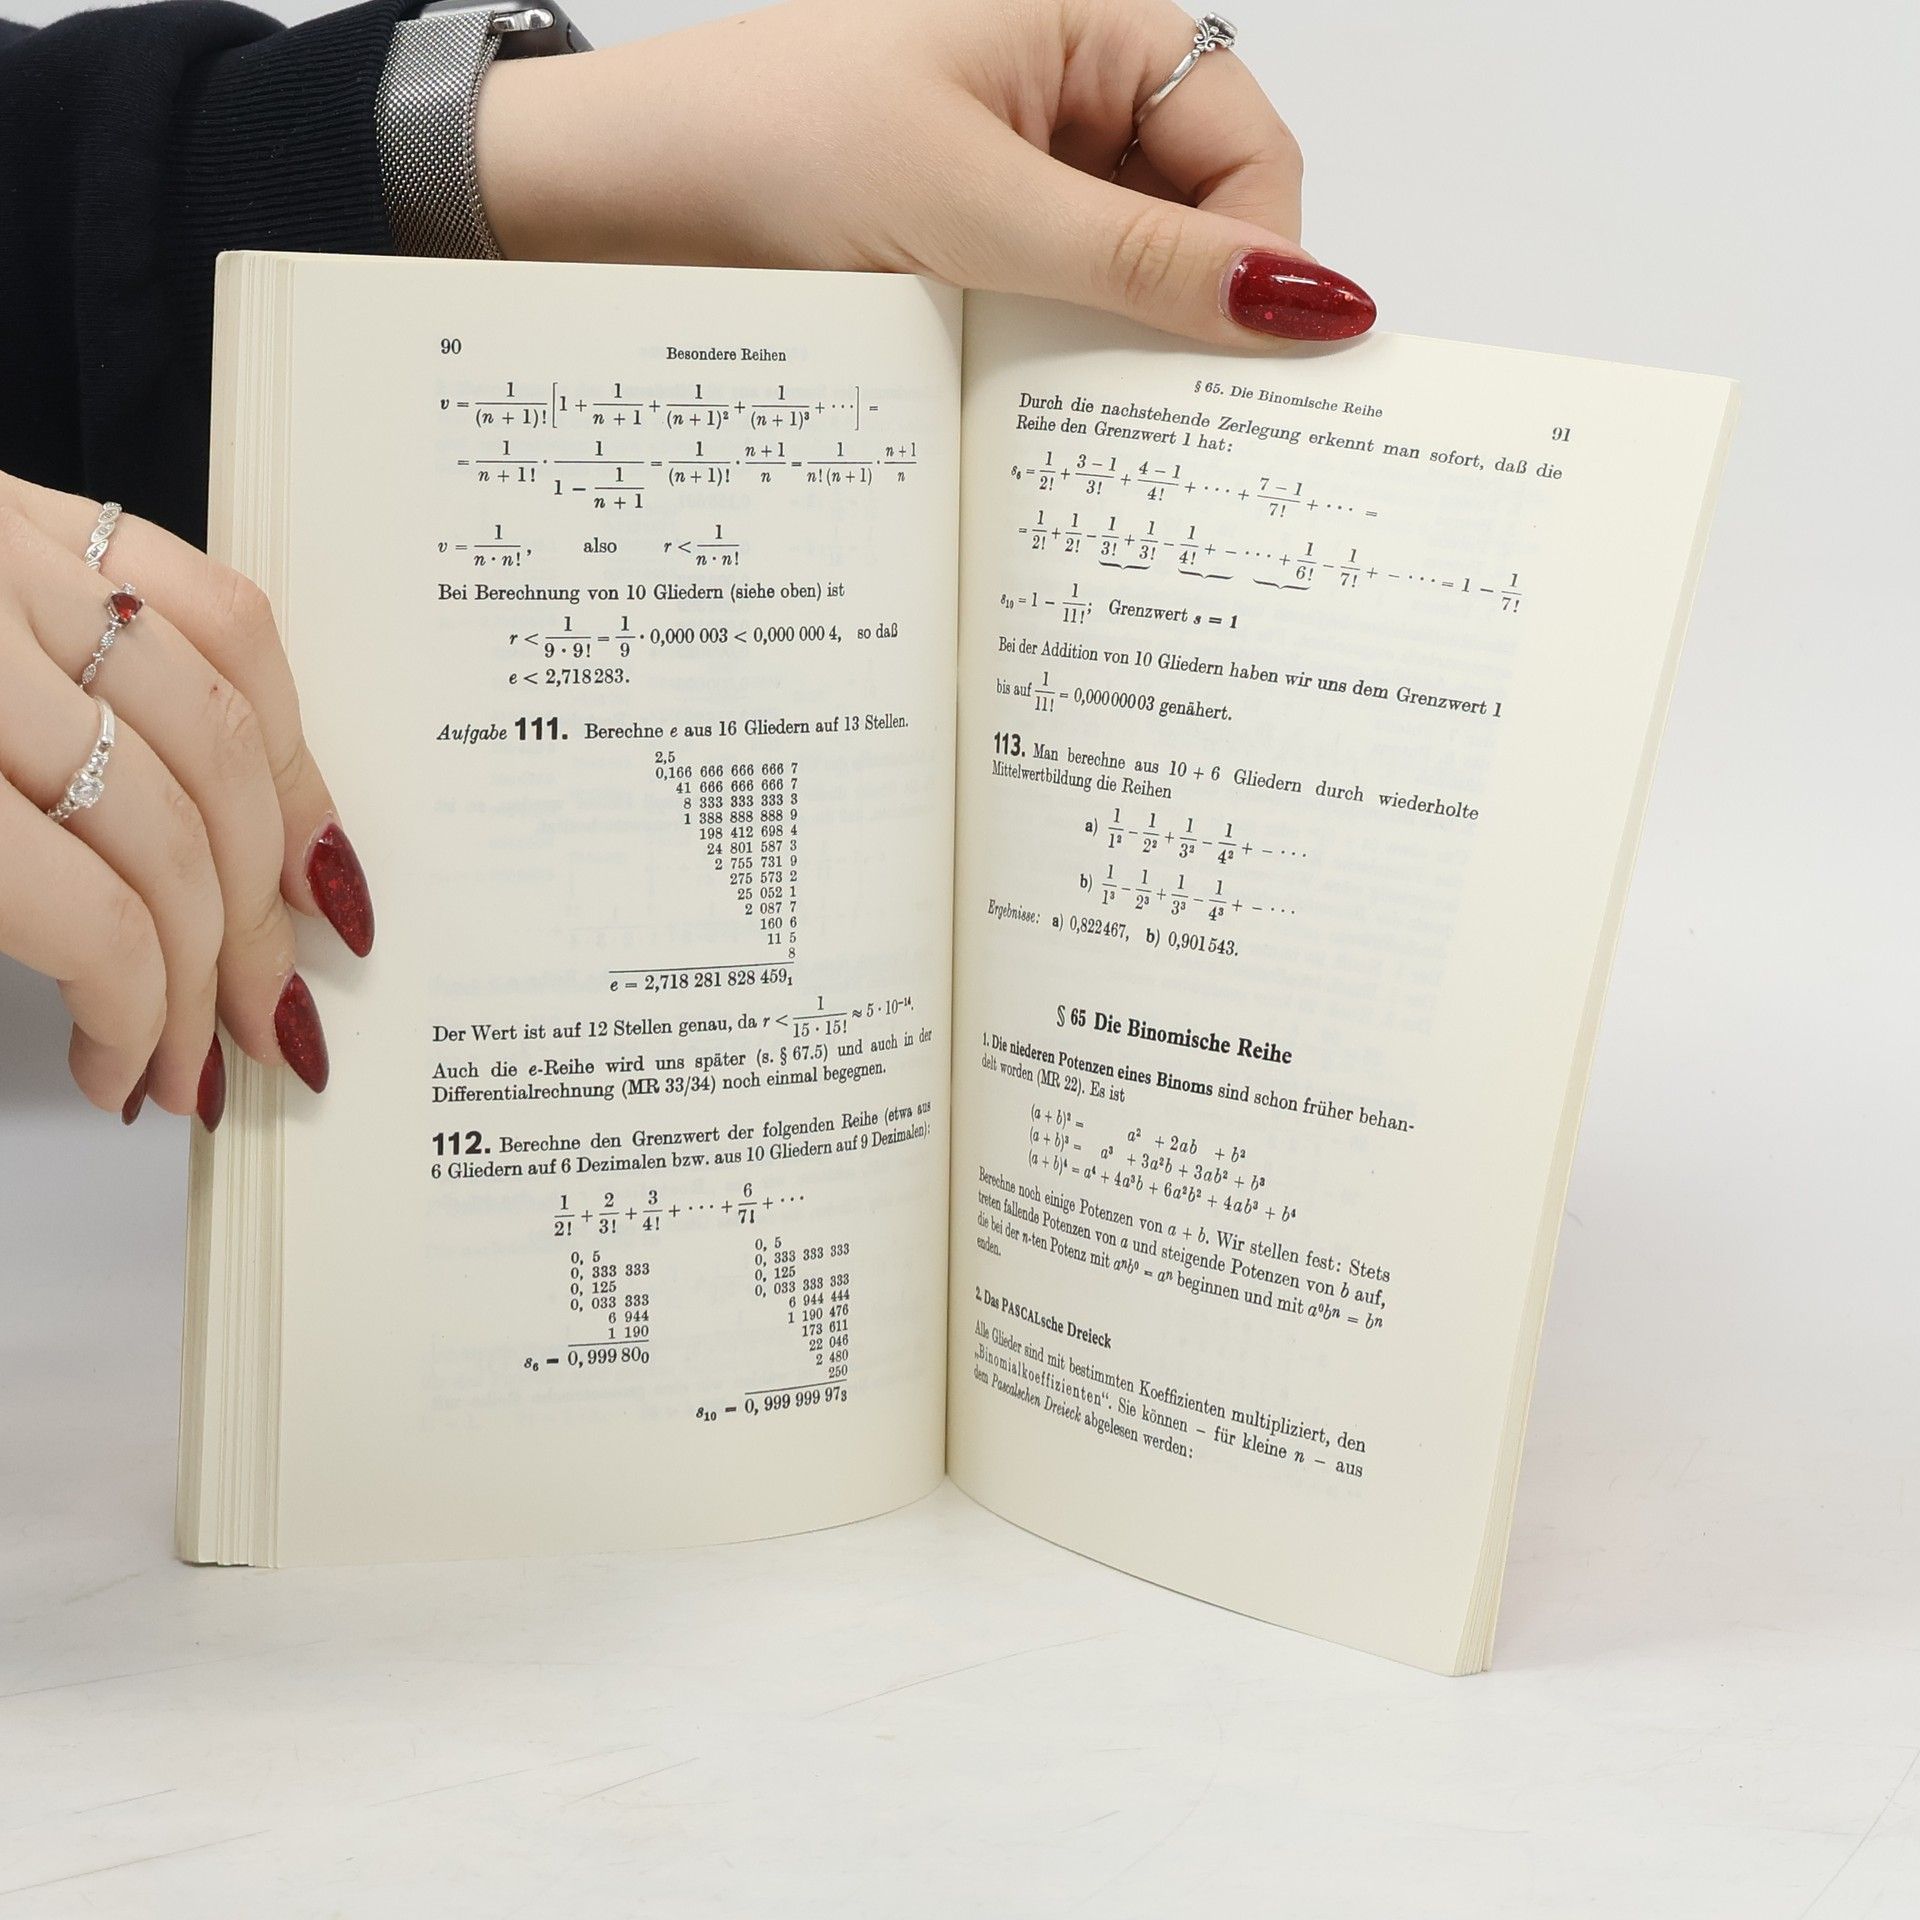 90
Besondere Reihen
v = 1/(n + 1)! [1 + 1/(n + 1) + 1/(n + 1)² + 1/(n + 1)³ + ···] =
= 1/n + 1! · 1/(1 − 1/(n + 1)) = 1/(n + 1)! · (n + 1)/n = 1/(n! (n + 1)) · (n + 1)/n
v = 1/(n · n!), also r < 1/(n · n!)
Bei Berechnung von 10 Gliedern (siehe oben) ist
r < 1/(9 · 9!) = 1/9 · 0,000 003 < 0,000 000 4, so daß
e < 2,718 283.
Aufgabe 111. Berechne e aus 16 Gliedern auf 13 Stellen.
2,5
0,166 666 666 666 7
41 666 666 666 7
8 333 333 333 3
1 388 888 888 9
198 412 698 4
24 801 587 3
2 755 731 9
275 573 2
25 052 1
2 087 7
160 6
11 5
8
e = 2,718 281 828 459₁
Der Wert ist auf 12 Stellen genau, da r < 1/(15 · 15!) ≈ 5 · 10⁻¹⁴.
Auch die e-Reihe wird uns später (s. § 67.5) und auch in der
Differentialrechnung (MR 33/34) noch einmal begegnen.
112. Berechne den Grenzwert der folgenden Reihe (etwa aus
6 Gliedern auf 6 Dezimalen bzw. aus 10 Gliedern auf 9 Dezimalen):
1/2! + 2/3! + 3/4! + ··· + 6/7! + ···
0, 5
0, 333 333
0, 125
0, 033 333
6 944
1 190
s₆ = 0, 999 80₀
0, 5
0, 333 333 333
0, 125
0, 033 333 333
6 944 444
1 190 476
173 611
22 046
2 480
250
s₁₀ = 0, 999 999 97₃
§ 65. Die Binomische Reihe
91
Durch die nachstehende Zerlegung erkennt man sofort, daß die
Reihe den Grenzwert 1 hat:
s₆ = 1/2! + (3 − 1)/3! + (4 − 1)/4! + ··· + (7 − 1)/7! + ··· =
= 1/2! + 1/2! − 1/3! + 1/3! − 1/4! + − ··· + 1/6! − 1/7! + − ··· = 1 − 1/7!
s₁₀ = 1 − 1/11!; Grenzwert s = 1
Bei der Addition von 10 Gliedern haben wir uns dem Grenzwert 1
bis auf 1/11! = 0,00000003 genähert.
113. Man berechne aus 10 + 6 Gliedern durch wiederholte
Mittelwertbildung die Reihen
a) 1/1² − 1/2² + 1/3² − 1/4² + − ···
b) 1/1³ − 1/2³ + 1/3³ − 1/4³ + − ···
Ergebnisse: a) 0,822467, b) 0,901543.
§ 65 Die Binomische Reihe
1. Die niederen Potenzen eines Binoms sind schon früher behan-
delt worden (MR 22). Es ist
(a + b)² = a² + 2ab + b²
(a + b)³ = a³ + 3a²b + 3ab² + b³
(a + b)⁴ = a⁴ + 4a³b + 6a²b² + 4ab³ + b⁴
Berechne noch einige Potenzen von a + b. Wir stellen fest: Stets
treten fallende Potenzen von a und steigende Potenzen von b auf,
die bei der n-ten Potenz mit aⁿb⁰ = aⁿ beginnen und mit a⁰bⁿ = bⁿ
enden.
2. Das PASCALsche Dreieck
Alle Glieder sind mit bestimmten Koeffizienten multipliziert, den
„Binomialkoeffizienten“. Sie können – für kleine n – aus
dem Pascalschen Dreieck abgelesen werden: